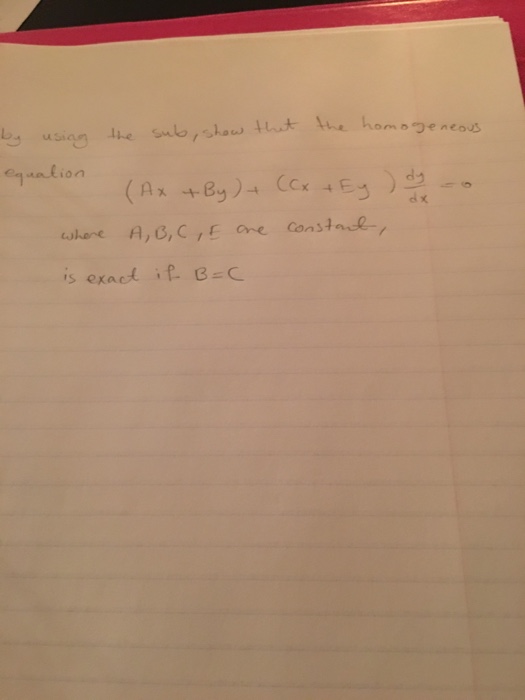 by using the sub, show that the homogeneous
equation
(Ax + By) + (Cx + Ey) dy/dx = 0
where A, B, C, E are constant,
is exact if B = C